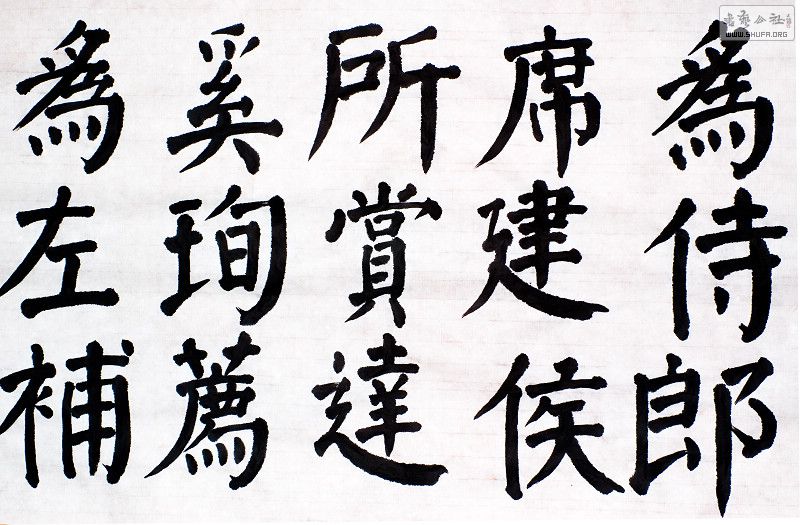 為侍郎
席建侯
所賞達
奚珣薦
為左補
書藝公社
WWW.SHUFA.ORG